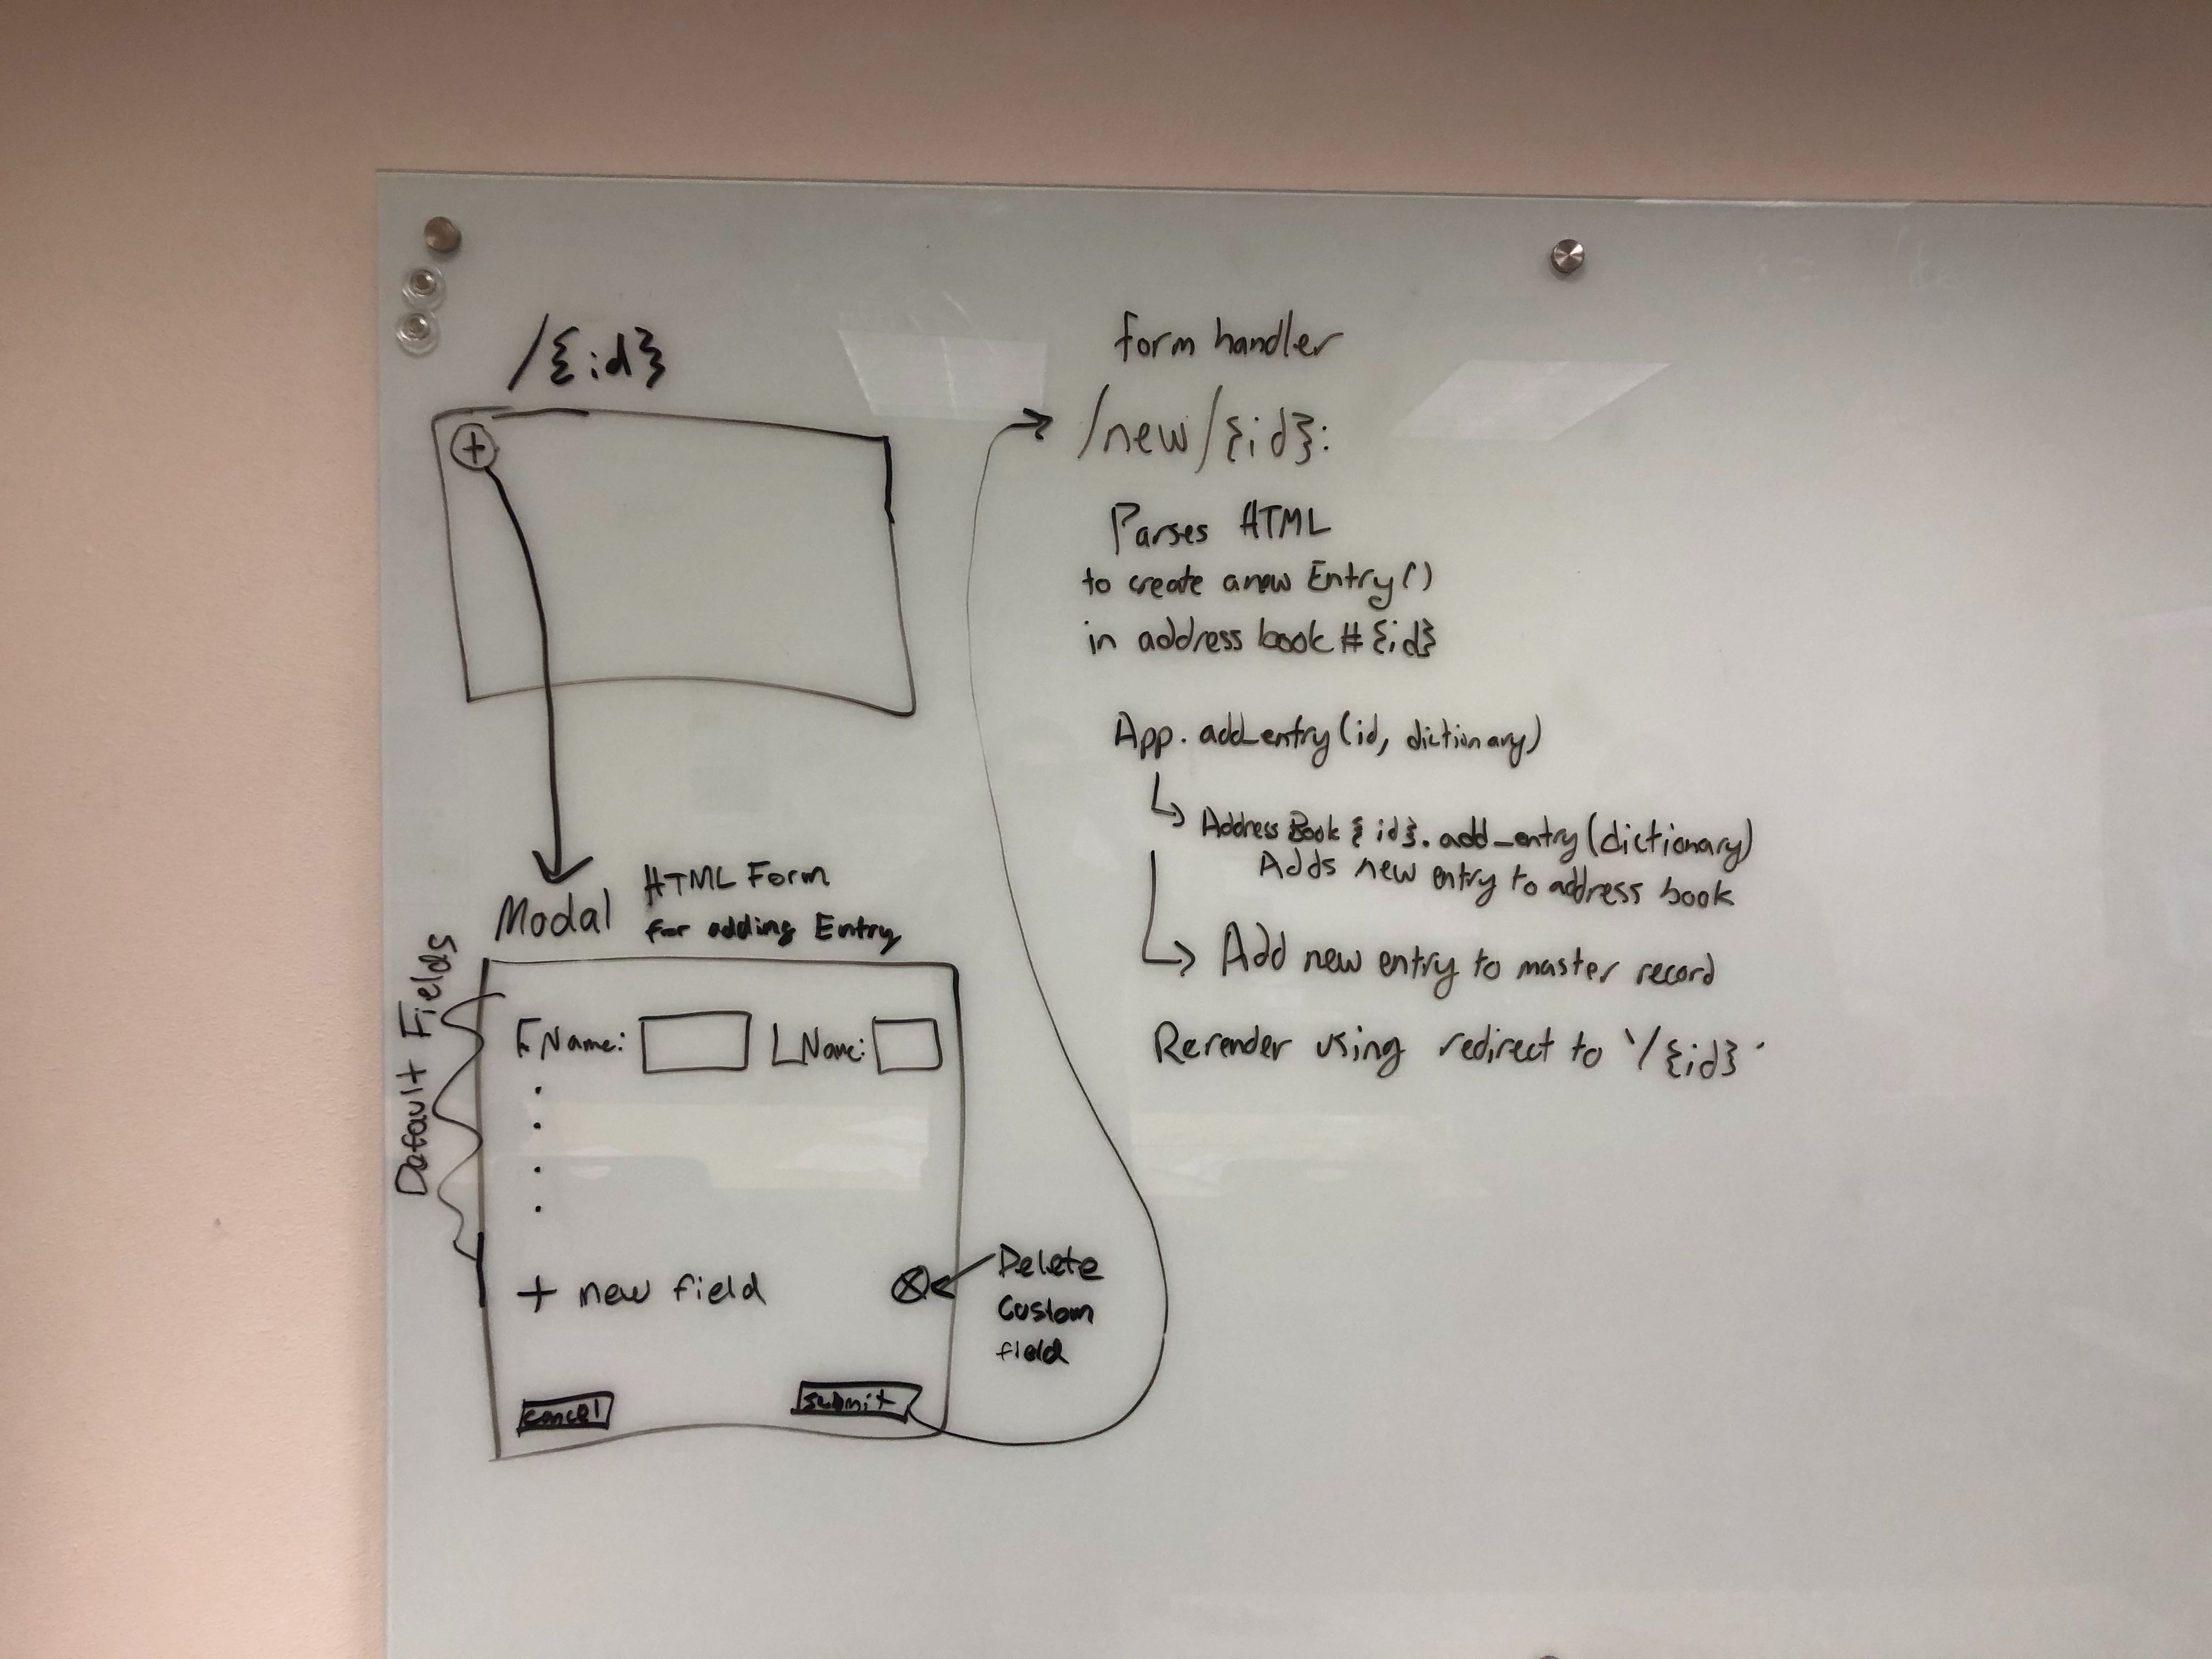 /{id}
+
Modal
HTML Form
for adding Entry
Default Fields
FName:
LName:
+ new field
Delete
Custom
field
cancel
submit
form handler
/new/{id}:
Parses HTML
to create a new Entry()
in address book #{id}
App.add_entry(id, dictionary)
Address Book {id}.add_entry(dictionary)
Adds new entry to address book
Add new entry to master record
Rerender using redirect to '/{id}'